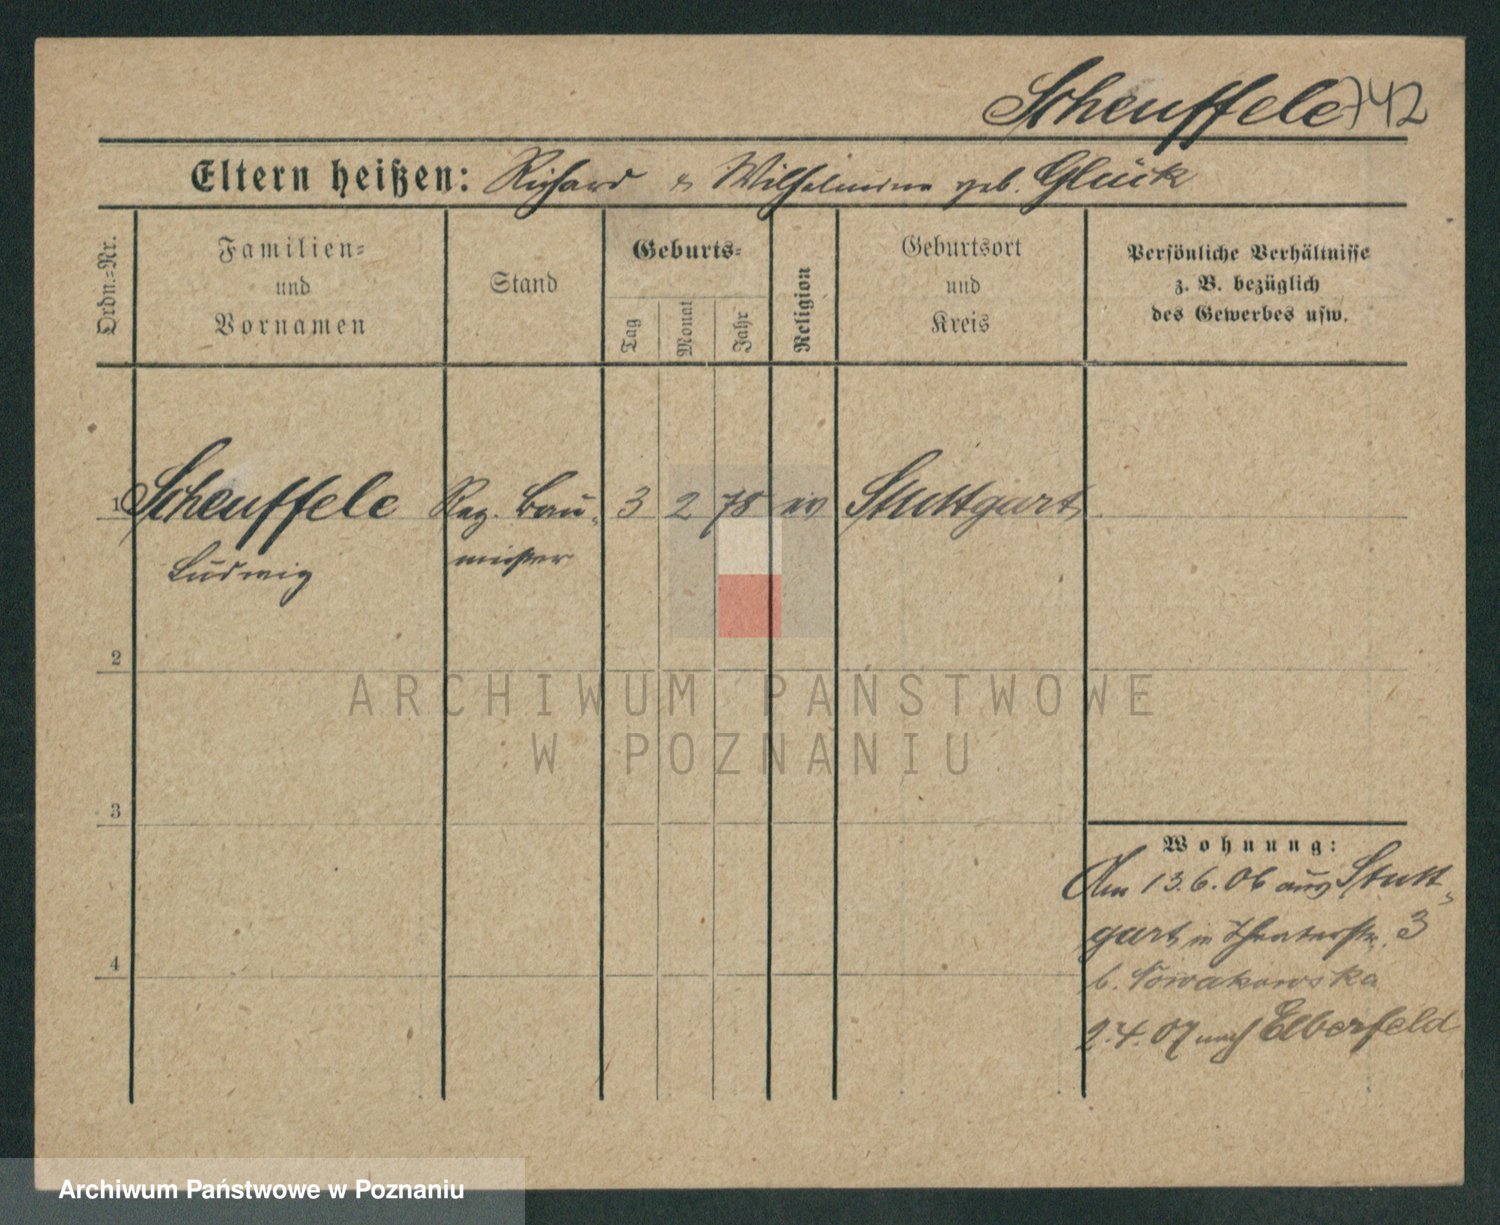 Scheuffele 742
Eltern heißen: Richard & Wilhelmine geb. Glück
Ordn.=Nr.
Familien=
und
Vornamen
Stand
Geburts=
Tag
Monat
Jahr
Religion
Geburtsort
und
Kreis
Persönliche Verhältnisse
z. B. bezüglich
des Gewerbes usw.
1 Scheuffele Reg. Bau- 3 2 78 ev Stuttgart
Ludwig meister
2
ARCHIWUM PAŃSTWOWE
W POZNANIU
3
Wohnung:
Am 13.6.06 aus Stutt-
gart in Theaterstr. 3
4
b. Nowakowska
2.4.07 nach Elberfeld
Archiwum Państwowe w Poznaniu